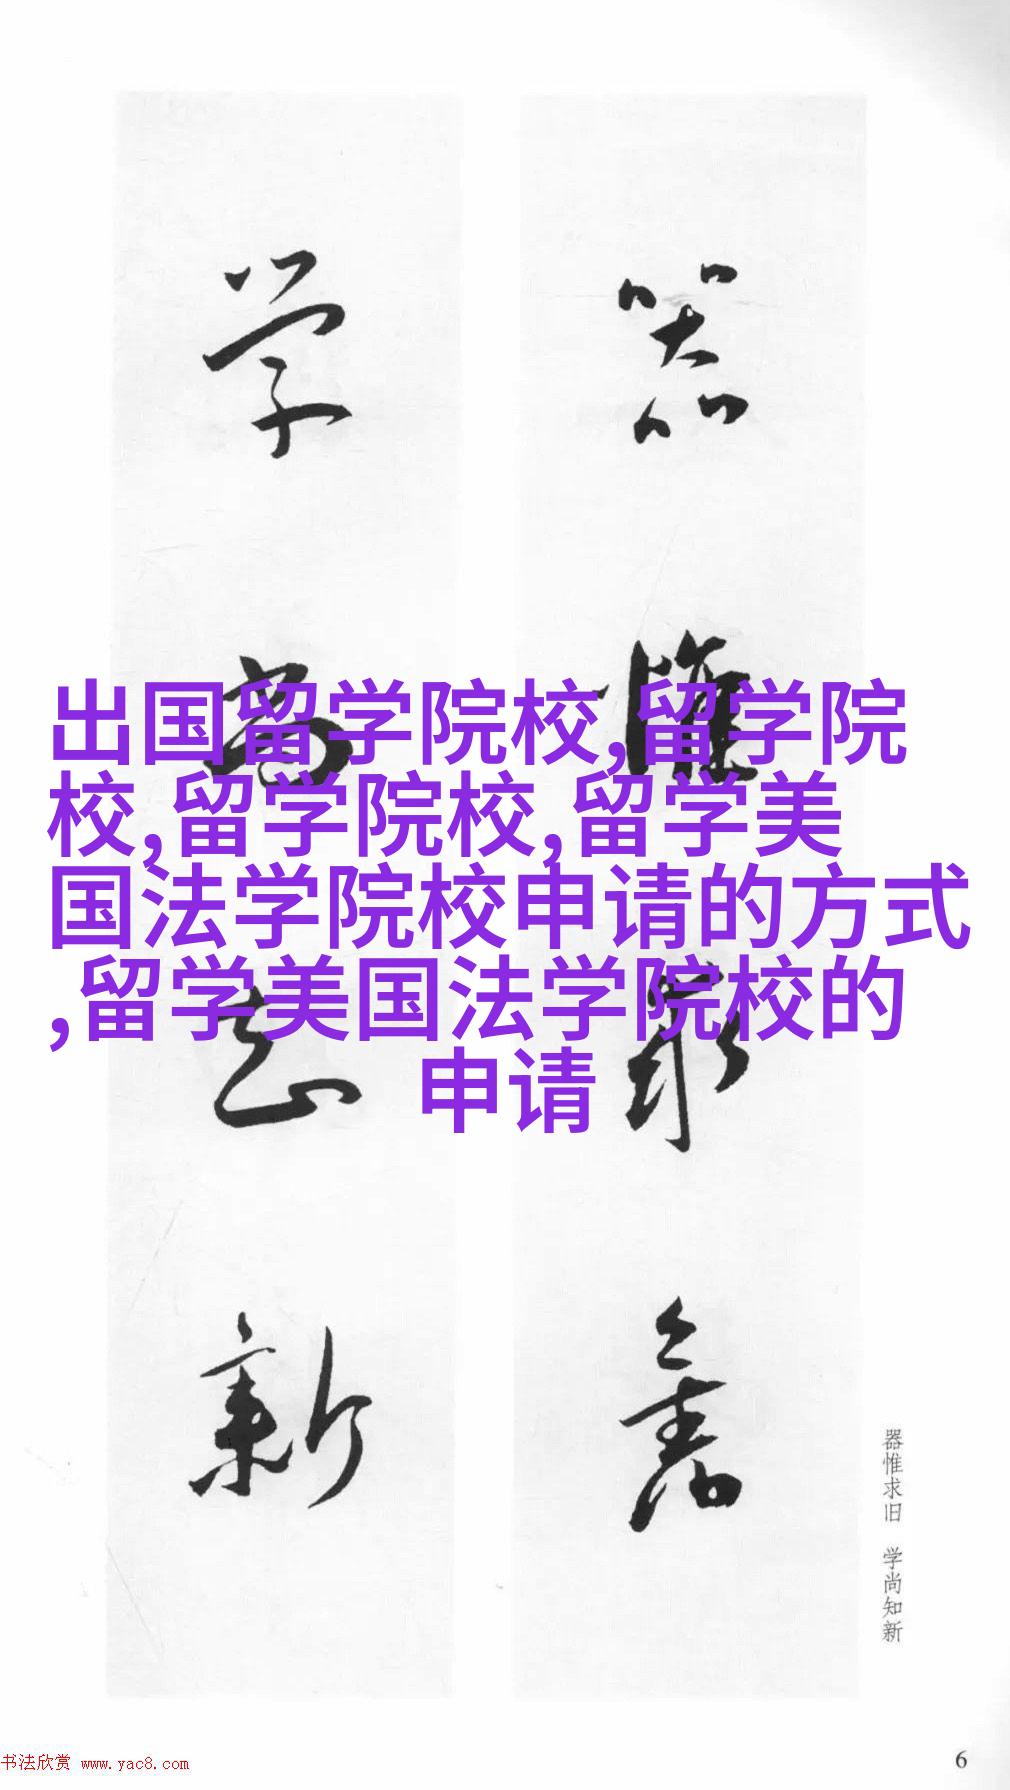 器惟求舊
学尚知新
出国留学院校,留学院
校,留学院校,留学美
国法学院校申请的方式
,留学美国法学院校的
申请
器惟求旧 学尚知新
书法欣赏 www.yac8.com
6